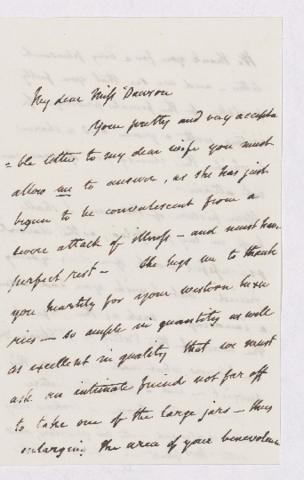 My dear Miss Dawson
Your pretty and very accepta
=ble letter to my dear wife you must
allow me to answer, as she has just
begun to be convalescent from a
severe attack of illness – and must have
perfect rest – She begs me to thank
you heartily for your western luxu
ries – so ample in quantity as well
as excellent in quality that we must
ask an intimate friend not far off
to take one of the large jars – thus
enlarging the area of your benevolence